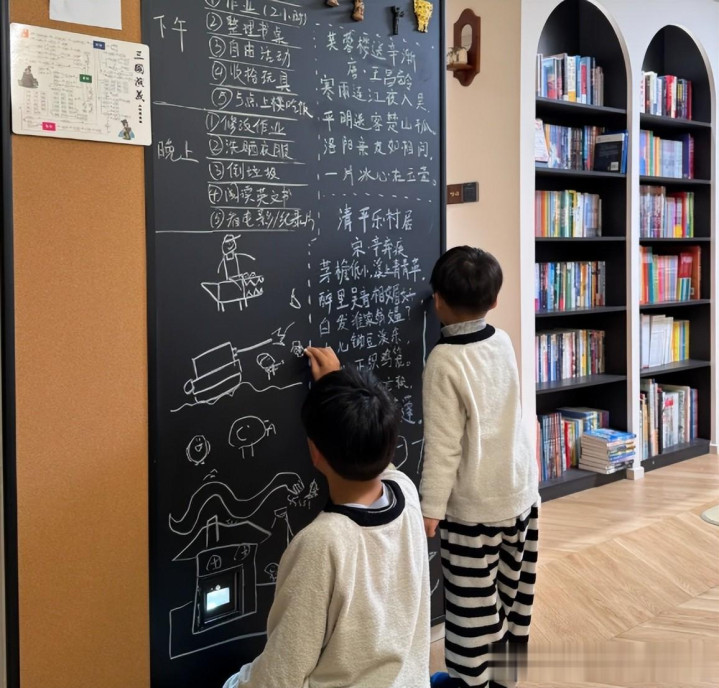 三国演义
下午
① 作业(2小时)
② 整理书桌
③ 自由活动
④ 收拾玩具
⑤ 5点上楼吃饭
晚上
① 修改作业
② 洗晒衣服
③ 倒垃圾
④ 阅读英文书
⑤ 看电影/纪录片
芙蓉楼送辛渐
唐·王昌龄
寒雨连江夜入吴
平明送客楚山孤
洛阳亲友如相问
一片冰心在玉壶
清平乐·村居
宋·辛弃疾
茅檐低小,溪上青青草。
醉里吴音相媚好
白发谁家翁媪?
儿锄豆溪东,
正织鸡笼。
莲。